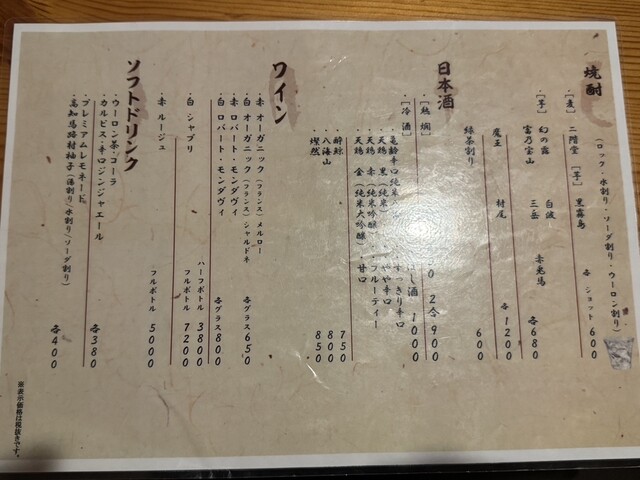 焼酎
(ロック・水割り・ソーダ割り・ウーロン割り)
・[麦] 二階堂 [芋] 黒霧島 各 ショット 600
・[芋] 幻の露 白波 赤兎馬
富乃宝山 三岳 各680
魔王 村尾 各1200
緑茶割り 600
日本酒
・[熱燗] 0 2合 900
・[冷酒] し酒 1000
・亀齢 辛口純米 すっきり辛口
・天鶏 黒(純米) やや辛口
・天鶏 赤(純米吟醸) フルーティー
・天鶏 金(純米大吟醸) 甘口
・酔鯨 750
・八海山 800
・燦然 850
ワイン
・赤 オーガニック(フランス)メルロー
・白 オーガニック(フランス)シャルドネ 各グラス650
・赤 ロバート・モンダヴィ
・白 ロバート・モンダヴィ 各グラス800
・白 シャブリ ハーフボトル 3800
フルボトル 7200
・赤 ルージュ フルボトル 5000
ソフトドリンク
・ウーロン茶・コーラ
・カルピス・辛口ジンジャエール 各380
・プレミアムレモネード
・高知馬路村柚子(湯割り/水割り/ソーダ割り) 各400
※表示価格は税抜きです。